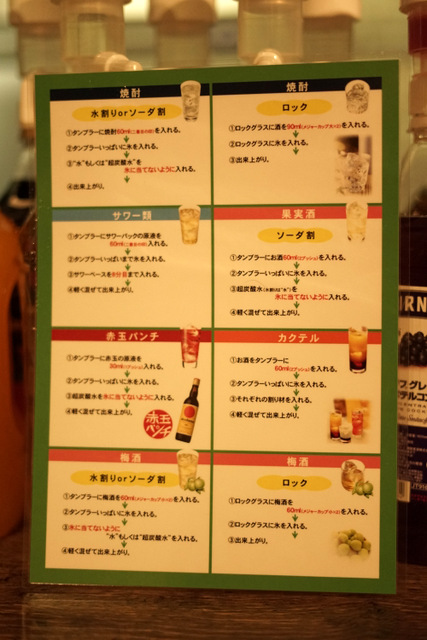 焼酎
水割りorソーダ割
①タンブラーに焼酎60ml(二重左の線)を入れる。
②タンブラーいっぱいに氷を入れる。
③"水"もしくは"超炭酸水"を
氷に当てないように入れる。
④出来上がり。
焼酎
ロック
①ロックグラスに酒を90ml(メジャーカップ大×2)を入れる。
②ロックグラスに氷を入れる。
③出来上がり。
サワー類
①タンブラーにサワーパックの原液を
60ml入れる。
②タンブラーいっぱいまで氷を入れる。
③サワーベースを8分目まで入れる。
④軽く混ぜて出来上がり。
果実酒
ソーダ割
①タンブラーにお酒60ml(2プッシュ)を入れる。
②タンブラーいっぱいに氷を入れる。
③超炭酸水(水割りは"水")を
氷に当てないように入れる。
④軽く混ぜて出来上がり。
赤玉パンチ
①タンブラーに赤玉の原液を
30ml(1プッシュ)入れる。
②タンブラーいっぱいに氷を入れる。
③超炭酸水を氷に当てないように入れる。
④軽く混ぜて出来上がり。
赤玉
パンチ
カクテル
①お酒をタンブラーに
60ml(2プッシュ)入れる。
②タンブラーいっぱいに氷を入れる。
③それぞれの割り材を入れる。
④軽く混ぜて出来上がり。
梅酒
水割りorソーダ割
①タンブラーに梅酒を60ml(メジャーカップ大×2)を入れる。
②タンブラーいっぱいに氷を入れる。
③氷に当てないように
"水"もしくは"超炭酸水"を入れる。
④軽く混ぜて出来上がり。
梅酒
ロック
①ロックグラスに梅酒を
60ml(メジャーカップ大×2)入れる。
②ロックグラスに氷を入れる。
③出来上がり。